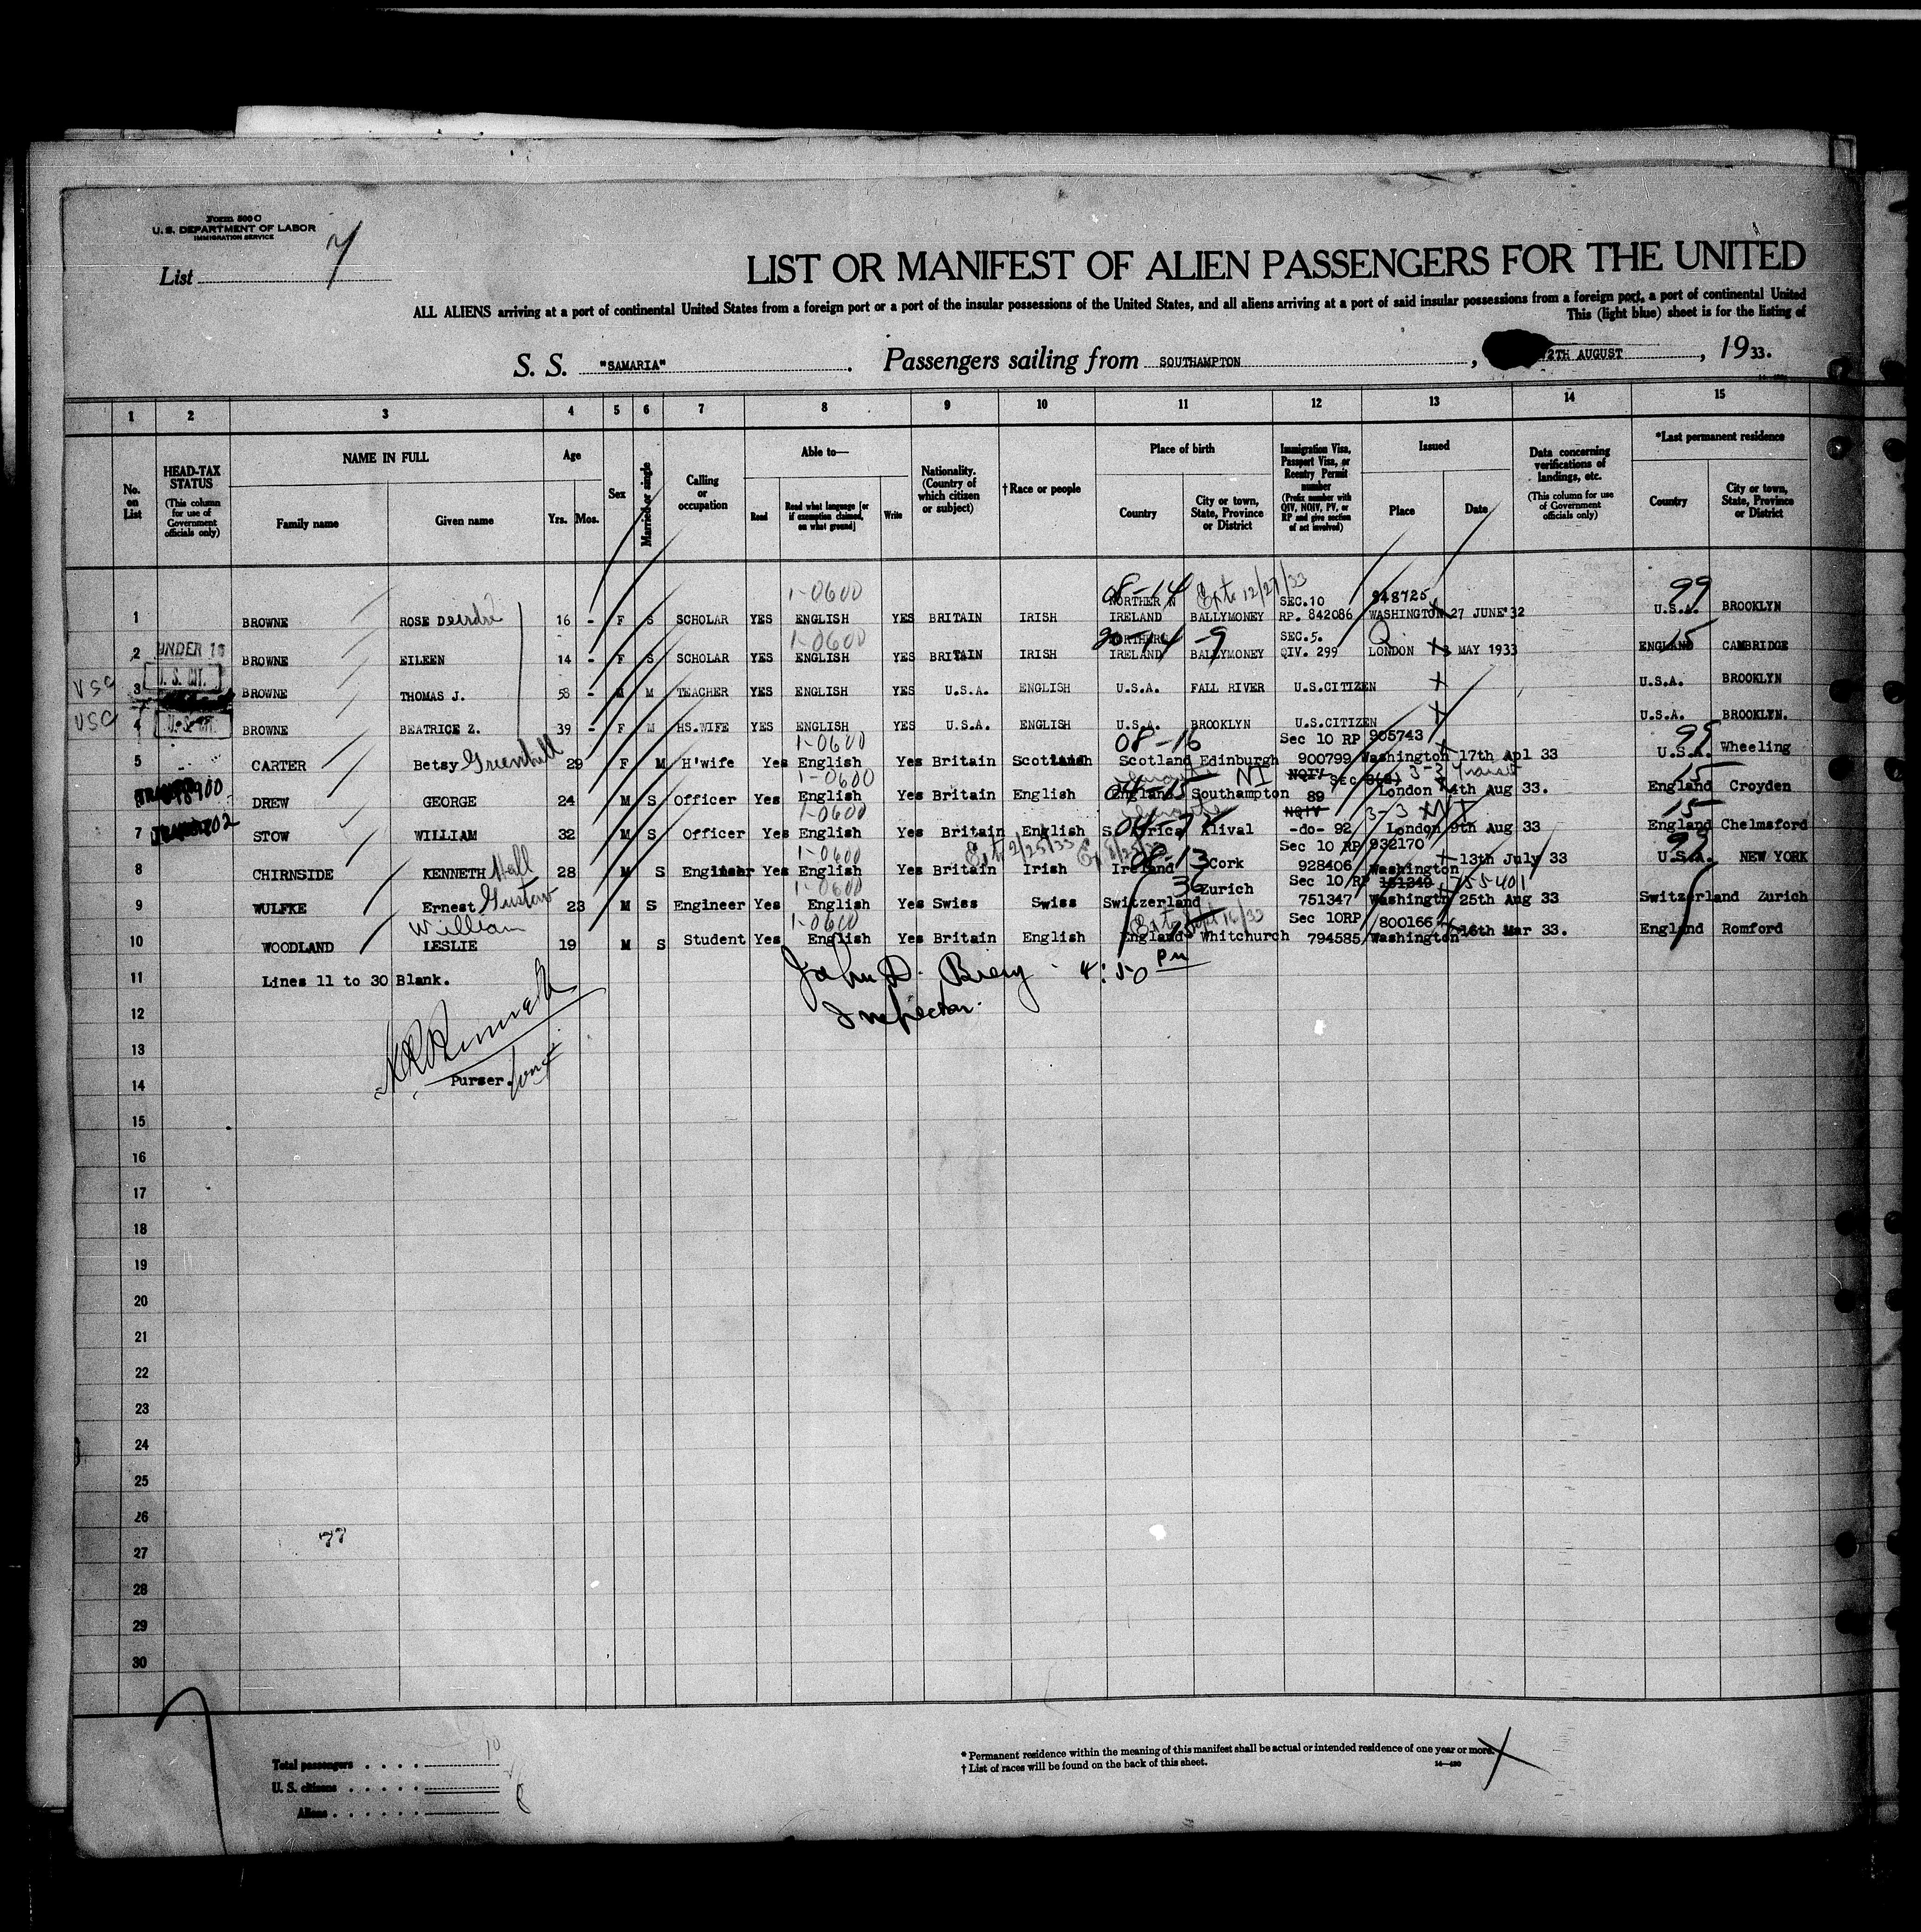 Form 500 C
U. S. DEPARTMENT OF LABOR
IMMIGRATION SERVICE
List 7
LIST OR MANIFEST OF ALIEN PASSENGERS FOR THE UNITED
ALL ALIENS arriving at a port of continental United States from a foreign port or a port of the insular possessions of the United States, and all aliens arriving at a port of said insular possessions from a foreign port, a port of continental United
This (light blue) sheet is for the listing of
S. S. "SAMARIA". Passengers sailing from SOUTHAMPTON, 2TH AUGUST, 1933.
1 2 3 4 5 6 7 8 9 10 11 12 13 14 15
No. on List
HEAD-TAX STATUS (This column for use of Government officials only)
NAME IN FULL Family name Given name
Age Yrs. Mos.
Sex
Married or single
Calling or occupation
Able to— Read Read what language [or if exemption claimed, on what ground] Write
Nationality. (Country of which citizen or subject)
†Race or people
Place of birth Country City or town, State, Province or District
Immigration Visa, Passport Visa, or Reentry Permit number (Prefix number with QIV, NQIV, PV, or RP and give section of act involved)
Issued Place Date
Data concerning verifications of landings, etc. (This column for use of Government officials only)
*Last permanent residence Country City or town, State, Province or District
1-0600 08-14 12/27/33 SEC.10 948725 99
1 BROWNE ROSE Deirdre 16 - F S SCHOLAR YES ENGLISH YES BRITAIN IRISH NORTHERN IRELAND BALLYMONEY RP. 842086 WASHINGTON 27 JUNE'32 U.S.A. BROOKLYN
UNDER 16 1-0600 -9 SEC.5. 15
2 BROWNE EILEEN 14 - F S SCHOLAR YES ENGLISH YES BRITAIN IRISH NORTHERN IRELAND BALLYMONEY QIV. 299 LONDON MAY 1933 ENGLAND CAMBRIDGE
USC U. S. CIT.
3 BROWNE THOMAS J. 58 - M M TEACHER YES ENGLISH YES U.S.A. ENGLISH U.S.A. FALL RIVER U.S.CITIZEN U.S.A. BROOKLYN
USC U. S. CIT.
4 BROWNE BEATRICE Z. 39 - F M HS.WIFE YES ENGLISH YES U.S.A. ENGLISH U.S.A. BROOKLYN U.S.CITIZEN U.S.A. BROOKLYN.
1-0600 08-16 Sec 10 RP 905743 99
5 CARTER Betsy Greenhill 29 F M H'wife Yes English Yes Britain Scottish Scotland Edinburgh 900799 Washington 17th Apl 33 U.S.A. Wheeling
1-0600 NI NQIV Sec 3(3) 3-3 Transit 15
DREW GEORGE 24 M S Officer Yes English Yes Britain English England Southampton 89 London 4th Aug 33. England Croyden
1-0600 04-7 NQIV 3-3 15
7 STOW WILLIAM 32 M S Officer Yes English Yes Britain English S. Africa Klival -do- 92 London 9th Aug 33 England Chelmsford
1-0600 2/25/33 08-13 Sec 10 RP 932170 99
8 CHIRNSIDE KENNETH Hall 28 M S Engineer Yes English Yes Britain Irish Ireland Cork 928406 Washington 13th July 33 U.S.A. NEW YORK
1-0600 36 Sec 10 RP 755401
9 WULFKE Ernest Gustav 23 M S Engineer Yes English Yes Swiss Swiss Switzerland Zurich 751347 Washington 25th Aug 33 Switzerland Zurich
William 1-0600 16/33 Sec 10RP 800166
10 WOODLAND LESLIE 19 M S Student Yes English Yes Britain English England Whitchurch 794585 Washington 16th Mar 33. England Romford
11 Lines 11 to 30 Blank.
John D. 4:50 PM
12 Inspector.
13
14 Purser.
15
16
17
18
19
20
21
22
23
24
25
26
77
27
28
29
30
Total passengers 10
U. S. citizens
Aliens 8
* Permanent residence within the meaning of this manifest shall be actual or intended residence of one year or more.
† List of races will be found on the back of this sheet.
14—430